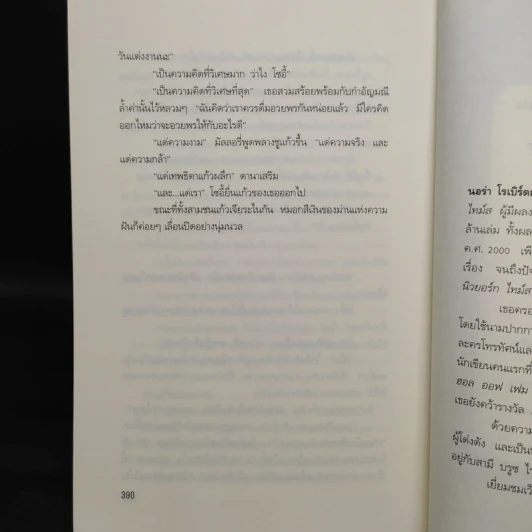 วันแต่งงานนะ"
"เป็นความคิดที่วิเศษมาก ว่าไง โซอี้"
"เป็นความคิดที่วิเศษที่สุด" เธอสวมสร้อยพร้อมกับกำอัญมณี
ล้ำค่านั้นไว้หลวมๆ "ฉันคิดว่าเราควรดื่มอวยพรกันหน่อยแล้ว มีใครคิด
ออกไหมว่าจะอวยพรให้กับอะไรดี"
"แด่ความงาม" มัลลอรี่พูดพลางชูแก้วขึ้น "แด่ความจริง และ
แด่ความกล้า"
"แด่เทพธิดาแก้วผลึก" ดานาเสริม
"และ...แด่เรา" โซอี้ยื่นแก้วของเธอออกไป
ขณะที่ทั้งสามชนแก้วเจียระไนกัน หมอกสีเงินของม่านแห่งความ
ฝันก็ค่อยๆ เลื่อนปิดอย่างนุ่มนวล
390
นอร่า โรเบิร์ตส
ไทม์ส ผู้มีผลง
ล้านเล่ม ทั้งผล
ค.ศ. 2000 เพี
เรื่อง จนถึงปัจ
นิวยอร์ก ไทม์ส
เธอครอ
โดยใช้นามปากกา
ละครโทรทัศน์แล
นักเขียนคนแรกที่
ฮอล ออฟ เฟม
เธอยังคว้ารางวัล
ด้วยความ
ผู้โด่งดัง และเป็น
อยู่กับสามี บรูซ ไ
เยี่ยมชมเว็